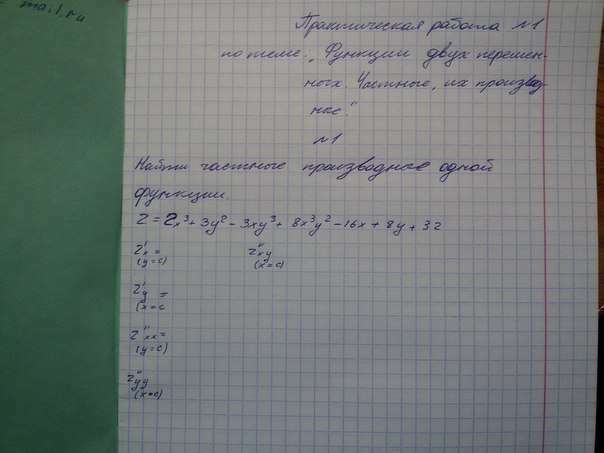 mail.ru
Практическая работа №1
по теме: „Функции двух перемен-
ных. Частные, их производ-
ные."
№1
Найти частные производные одной
функции.
Z = 2x³ + 3y² - 3xy³ + 8x³y² - 16x + 8y + 32
z'x = z''xy
(y=c) (x=c)
z'y =
(x=c
z''xx =
(y=c)
z''yy
(x=c)